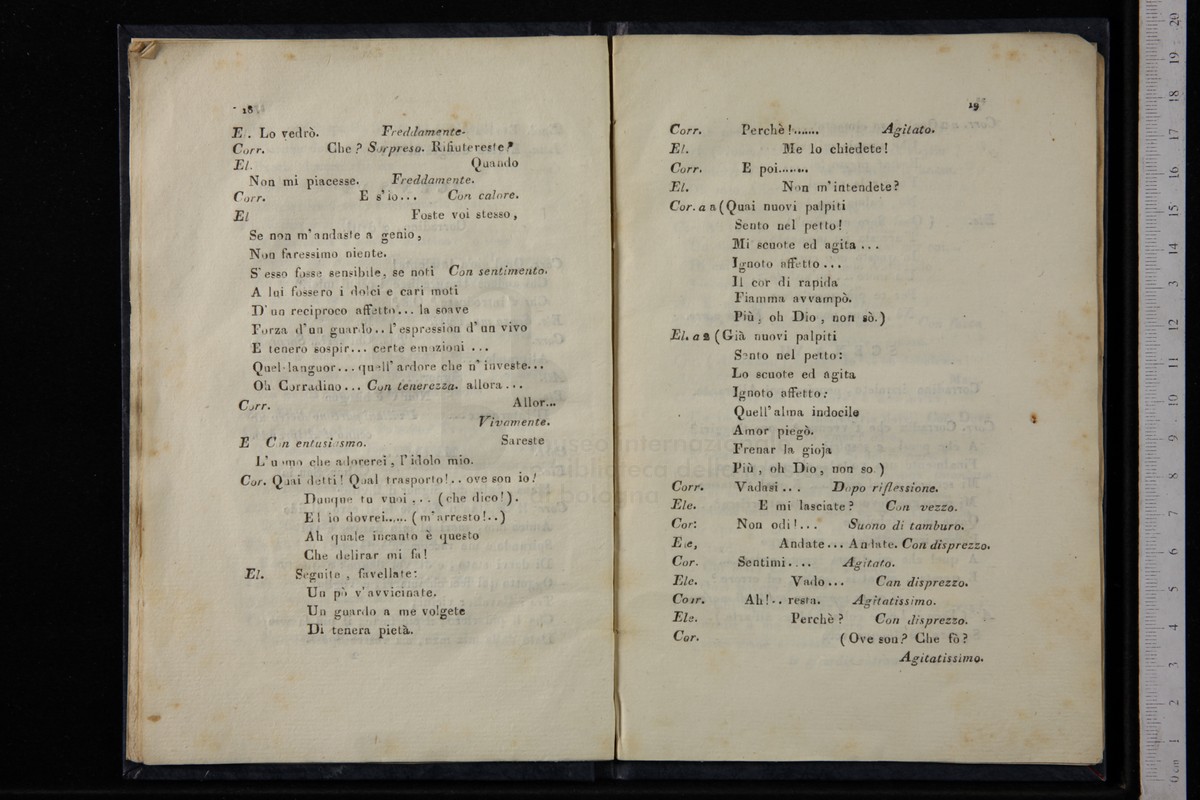 18
E. Lo vedrò. Freddamente.
Corr. Che? Sorpreso. Rifiutereste?
El. Quando
Non mi piacesse. Freddamente.
Corr. E s'io... Con calore.
El Foste voi stesso,
Se non m'andaste a genio,
Non faressimo niente.
S'esso fosse sensibile, se noti Con sentimento.
A lui fossero i dolci e cari moti
D'un reciproco affetto... la soave
Forza d'un guardo.. l'espression d'un vivo
E tenero sospir... certe emozioni ...
Quel languor... quell'ardore che n'investe...
Oh Corradino... Con tenerezza. allora...
Corr. Allor...
Vivamente.
E Con entusiasmo. Sareste
L'uomo che adorerei, l'idolo mio.
Cor. Quai detti! Qual trasporto!.. ove son io!
Dunque tu vuoi ... (che dico!).
El io dovrei...... (m'arresto!..)
Ah quale incanto è questo
Che delirar mi fa!
El. Seguite, favellate:
Un pò v'avvicinate.
Un guardo a me volgete
Di tenera pietà.
19
Corr. Perchè!....... Agitato.
El. Me lo chiedete!
Corr. E poi........
El. Non m'intendete?
Cor. a 2 (Quai nuovi palpiti
Sento nel petto!
Mi scuote ed agita ...
Ignoto affetto ...
Il cor di rapida
Fiamma avvampò.
Più, oh Dio, non sò.)
El. a 2 (Già nuovi palpiti
Sento nel petto:
Lo scuote ed agita
Ignoto affetto:
Quell'alma indocile
Amor piegò.
Frenar la gioja
Più, oh Dio, non so)
Corr. Vadasi ... Dopo riflessione.
Ele. E mi lasciate? Con vezzo.
Cor: Non odi!... Suono di tamburo.
Ele, Andate... Andate. Con disprezzo.
Cor. Sentimi.... Agitato.
Ele. Vado... Con disprezzo.
Corr. Ah!.. resta. Agitatissimo.
Ele. Perchè? Con disprezzo.
Cor. (Ove son? Che fò?
Agitatissimo.
museo internazionale
biblioteca della
di bologna